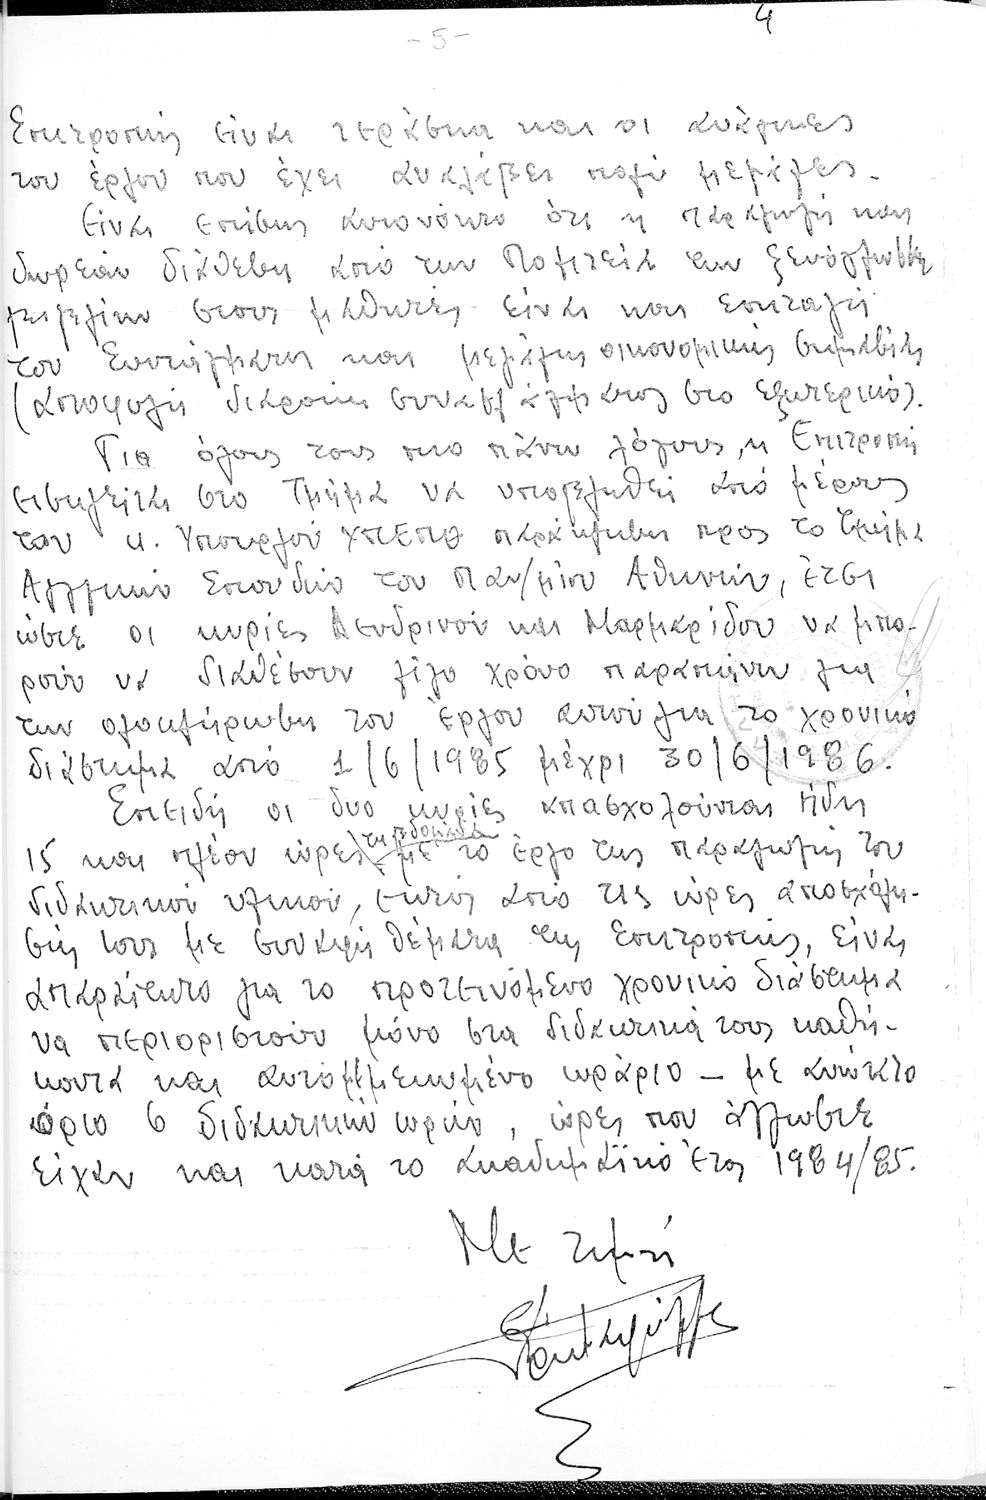 4
- 5 -
Επιτροπής είναι τεράστια και οι ανάγκες
του έργου που έχει αναλάβει πολύ μεγάλες.
Είναι επίσης αυτονόητο ότι η παραγωγή και
δωρεάν διάθεση από την Πολιτεία των ξενόγλωσσων
βιβλίων στους μαθητές είναι και επιταγή
του Συντάγματος και μεγάλης οικονομικής σημασίας
(αποφυγή διαρροής συναλλάγματος στο εξωτερικό).
Για όλους τους πιο πάνω λόγους, η Επιτροπή
εισηγείται στο Τμήμα να υποβληθεί από μέρους
του κ. Υπουργού ΥΠΕΠΘ παράκληση προς το Τμήμα
Αγγλικών Σπουδών του Παν/μίου Αθηνών, έτσι
ώστε οι κυρίες Δενδρινού και Μαρμαρίδου να μπο-
ρούν να διαθέσουν λίγο χρόνο παραπάνω για
την ολοκλήρωση του Έργου αυτού για το χρονικό
διάστημα από 1/6/1985 μέχρι 30/6/1986.
Επειδή οι δυο κυρίες απασχολούνται ήδη
15 και πλέον ώρες την εβδομάδα με το έργο της παραγωγής του
διδακτικού υλικού, εκτός από τις ώρες απασχόλη-
σής τους με συναφή θέματα της Επιτροπής, είναι
απαραίτητο για το προτεινόμενο χρονικό διάστημα
να περιοριστούν μόνο στα διδακτικά τους καθή-
κοντα και αυτό με μειωμένο ωράριο - με ανώτατο
όριο 6 διδακτικών ωρών, ώρες που άλλωστε
είχαν και κατά το ακαδημαϊκό έτος 1984/85.
Με τιμή